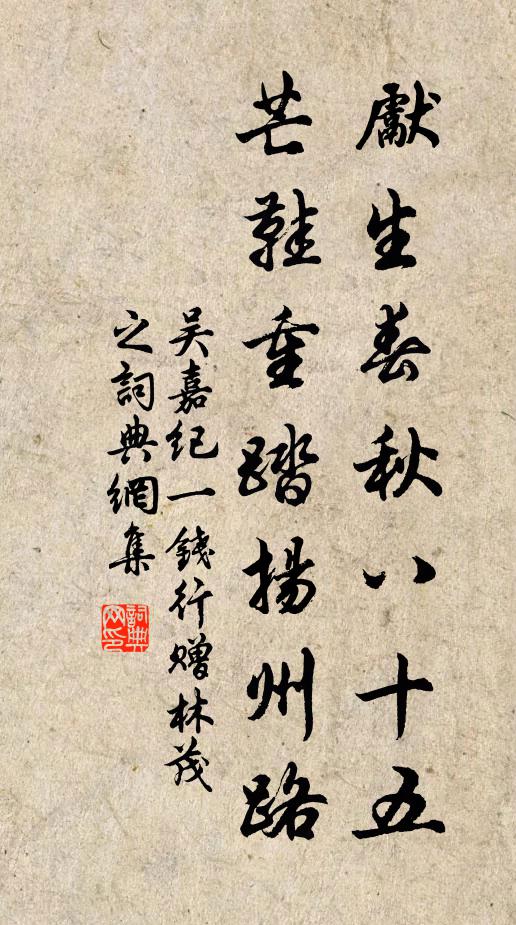 獻生春秋八十五
芒鞋重踏揚州路
吴嘉纪一錢行赠林茂
之詞典網集
詞典
网印